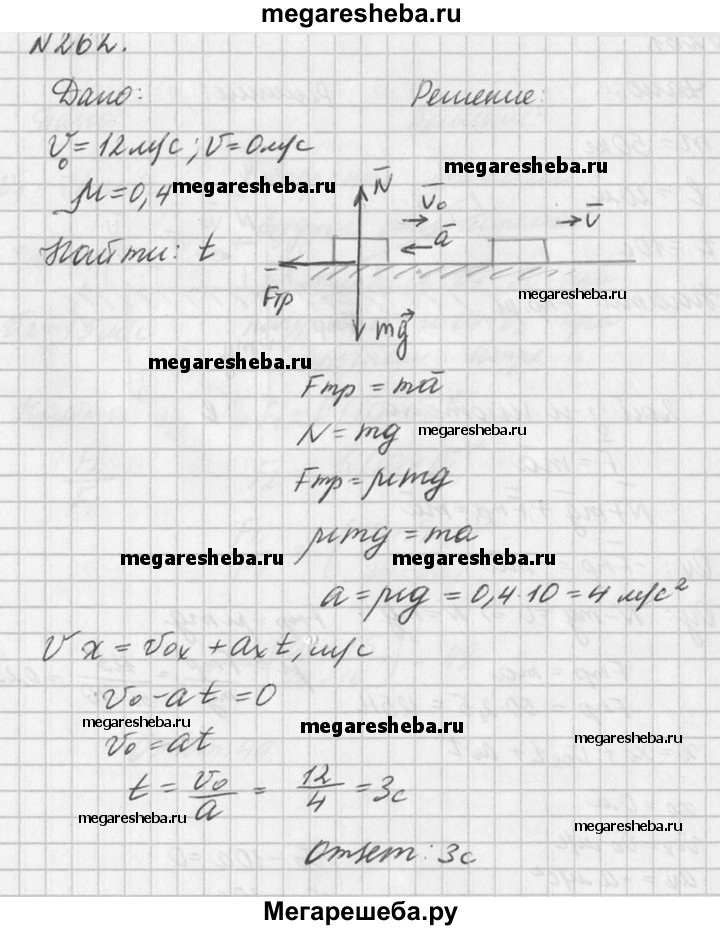 megaresheba.ru
N262.
Дано: Решение:
V₀ = 12 м/с; V = 0 м/с
megaresheba.ru
μ = 0,4 megaresheba.ru
N̄ V̄₀ V̄
ā
Найти: t
Fтр
megaresheba.ru
mg⃗
megaresheba.ru
Fтр = mā
N = mg megaresheba.ru
Fтр = μmg
μmg = ma
megaresheba.ru megaresheba.ru
a = μg = 0,4·10 = 4 м/с²
Vx = V₀x + aₓt, м/с
V₀ - at = 0
megaresheba.ru megaresheba.ru
V₀ = at megaresheba.ru
t = V₀/a = 12/4 = 3с
megaresheba.ru megaresheba.ru
Ответ: 3с
Мегарешеба.ру